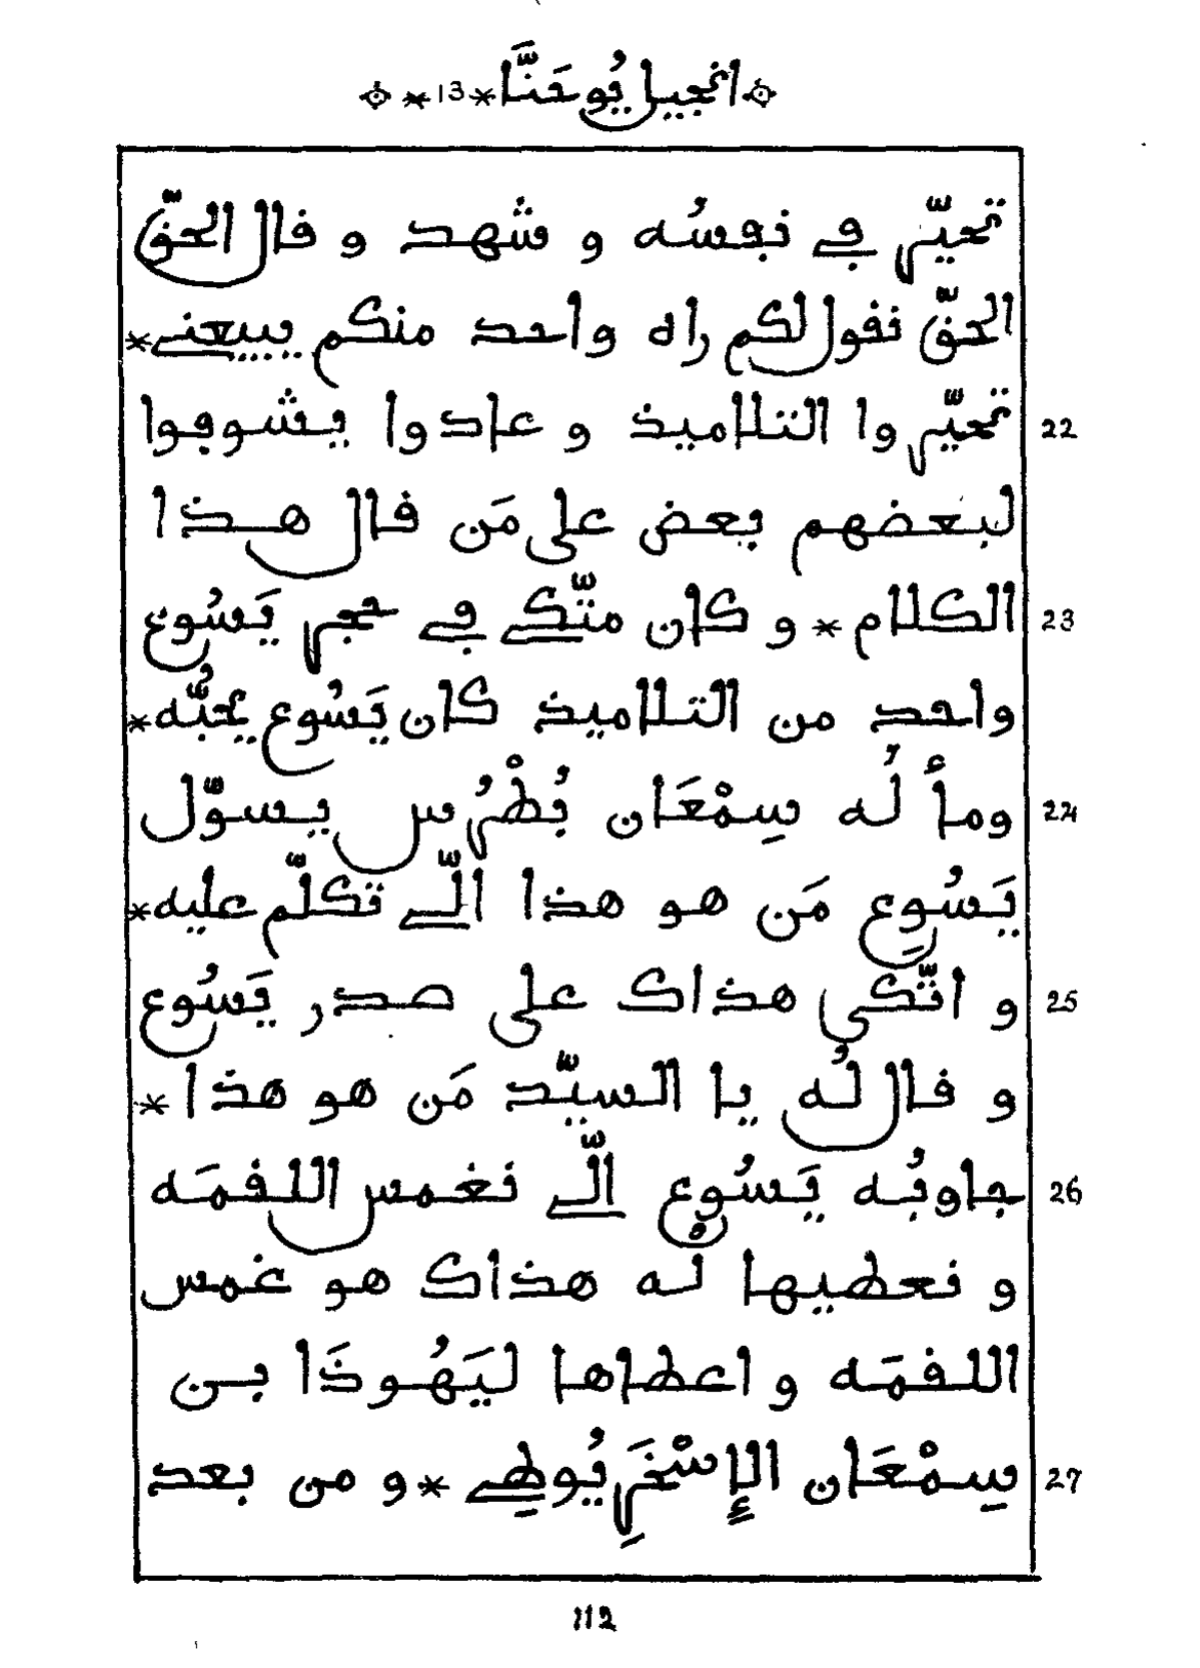 انجيل يُوحَنَّا * 13 *
تحيّر في نفسُه و شهد و قال الحقّ
الحقّ نقول لكم راه واحد منكم يبيعني *
22 تحيّروا التلاميذ و عادوا يشوفوا
لبعضهم بعض على مَن قال هذا
23 الكلام * و كان متّكي في حجر يَسُوع
واحد من التلاميذ كان يَسُوع يحبُّه *
24 ومأ لُه سِمْعَان بُطْرُس يسوّل
يَسُوع مَن هو هذا الّي تكلّم عليه *
25 و اتّكى هذاك على صدر يَسُوع
و قال لُه يا السيّد مَن هو هذا *
26 جاوبُه يَسُوع الّي نغمس اللقمَه
و نعطيها لُه هذاك هو غمس
اللقمَه و اعطاها ليَهُوذَا بن
27 سِمْعَان الإِسْخَرِيُوطِي * و من بعد
112